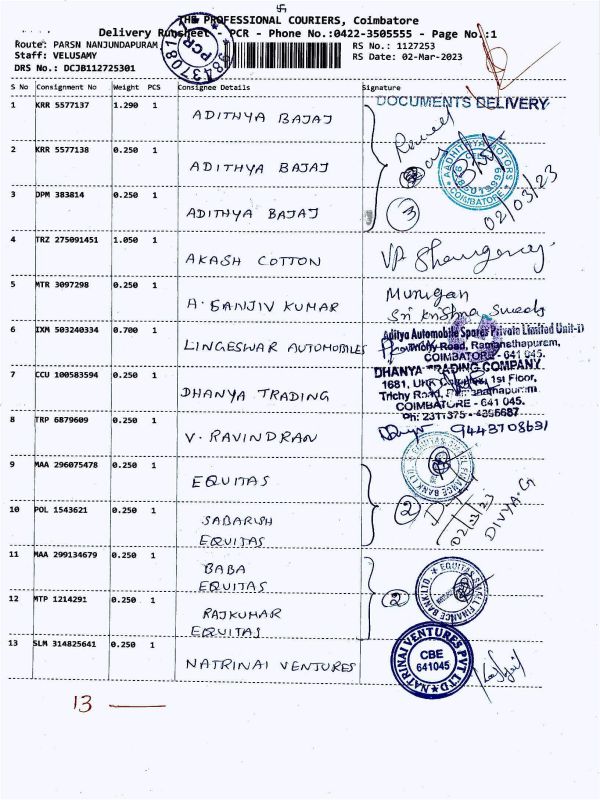 卐
THE PROFESSIONAL COURIERS, Coimbatore
Delivery Runsheet - PCR - Phone No.:0422-3505555 - Page No.:1
Route: PARSN NANJUNDAPURAM,
RS No.: 1127253
Staff: VELUSAMY
RS Date: 02-Mar-2023
DRS No.: DCJB112725301
PCR
S No Consignment No Weight PCS Consignee Details Signature
DOCUMENTS DELIVERY
1 KRR 5577137 1.290 1 ADITHYA BAJAJ
2 KRR 5577138 0.250 1 ADITHYA BAJAJ
AADHITHYA MOTORS
COIMBATORE
3 DPM 383814 0.250 1 ADITHYA BAJAJ
3
02/03/23
4 TRZ 275091451 1.050 1 AKASH COTTON
5 MTR 3097298 0.250 1 A. SANJIV KUMAR
Murugan
Sri Krishna Sweets
6 IXM 503240334 0.700 1 LINGESWAR AUTOMOBILES
Aditya Automobile Spares Private Limited Unit-II
Trichy Road, Ramanathapuram,
COIMBATORE - 641 045.
7 CCU 100583594 0.250 1 DHANYA TRADING
DHANYA TRADING COMPANY
1681, 1st Floor,
Trichy Road, Ramanathapuram
COIMBATORE - 641 045.
Ph: 2311375 - 4355687
8 TRP 6879609 0.250 1 V. RAVINDRAN
9443708631
9 MAA 296075478 0.250 1 EQUITAS
EQUITAS SMALL FINANCE BANK LTD
10 POL 1543621 0.250 1 SABARISH
EQUITAS
2
02/3/23
DIVYA.G
11 MAA 299134679 0.250 1 BABA
EQUITAS
12 MTP 1214291 0.250 1 RAJKUMAR
EQUITAS
2
EQUITAS SMALL FINANCE BANK LTD.
13 SLM 314825641 0.250 1 NATRINAI VENTURES
NATRINAI VENTURES PVT LTD
CBE
641045
13